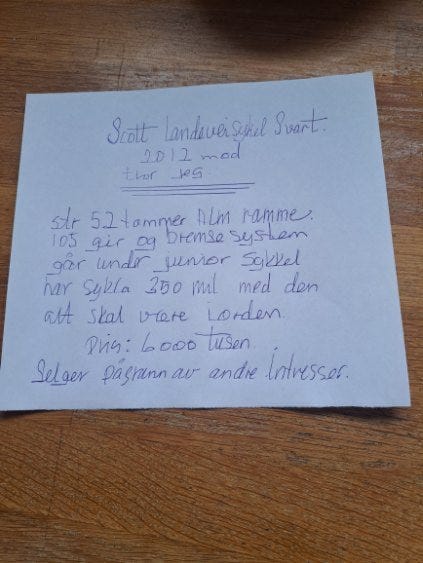 Scott Landeveisykel Svart.
2012 mod
tror jeg.
str 52 tommer Alm ramme.
105 gir og bremse system
går under junior sykkel
har sykla 350 mil med den
alt skal være i orden.
Pris: 6000 tusen.
Selger pågrann av andre intresser.